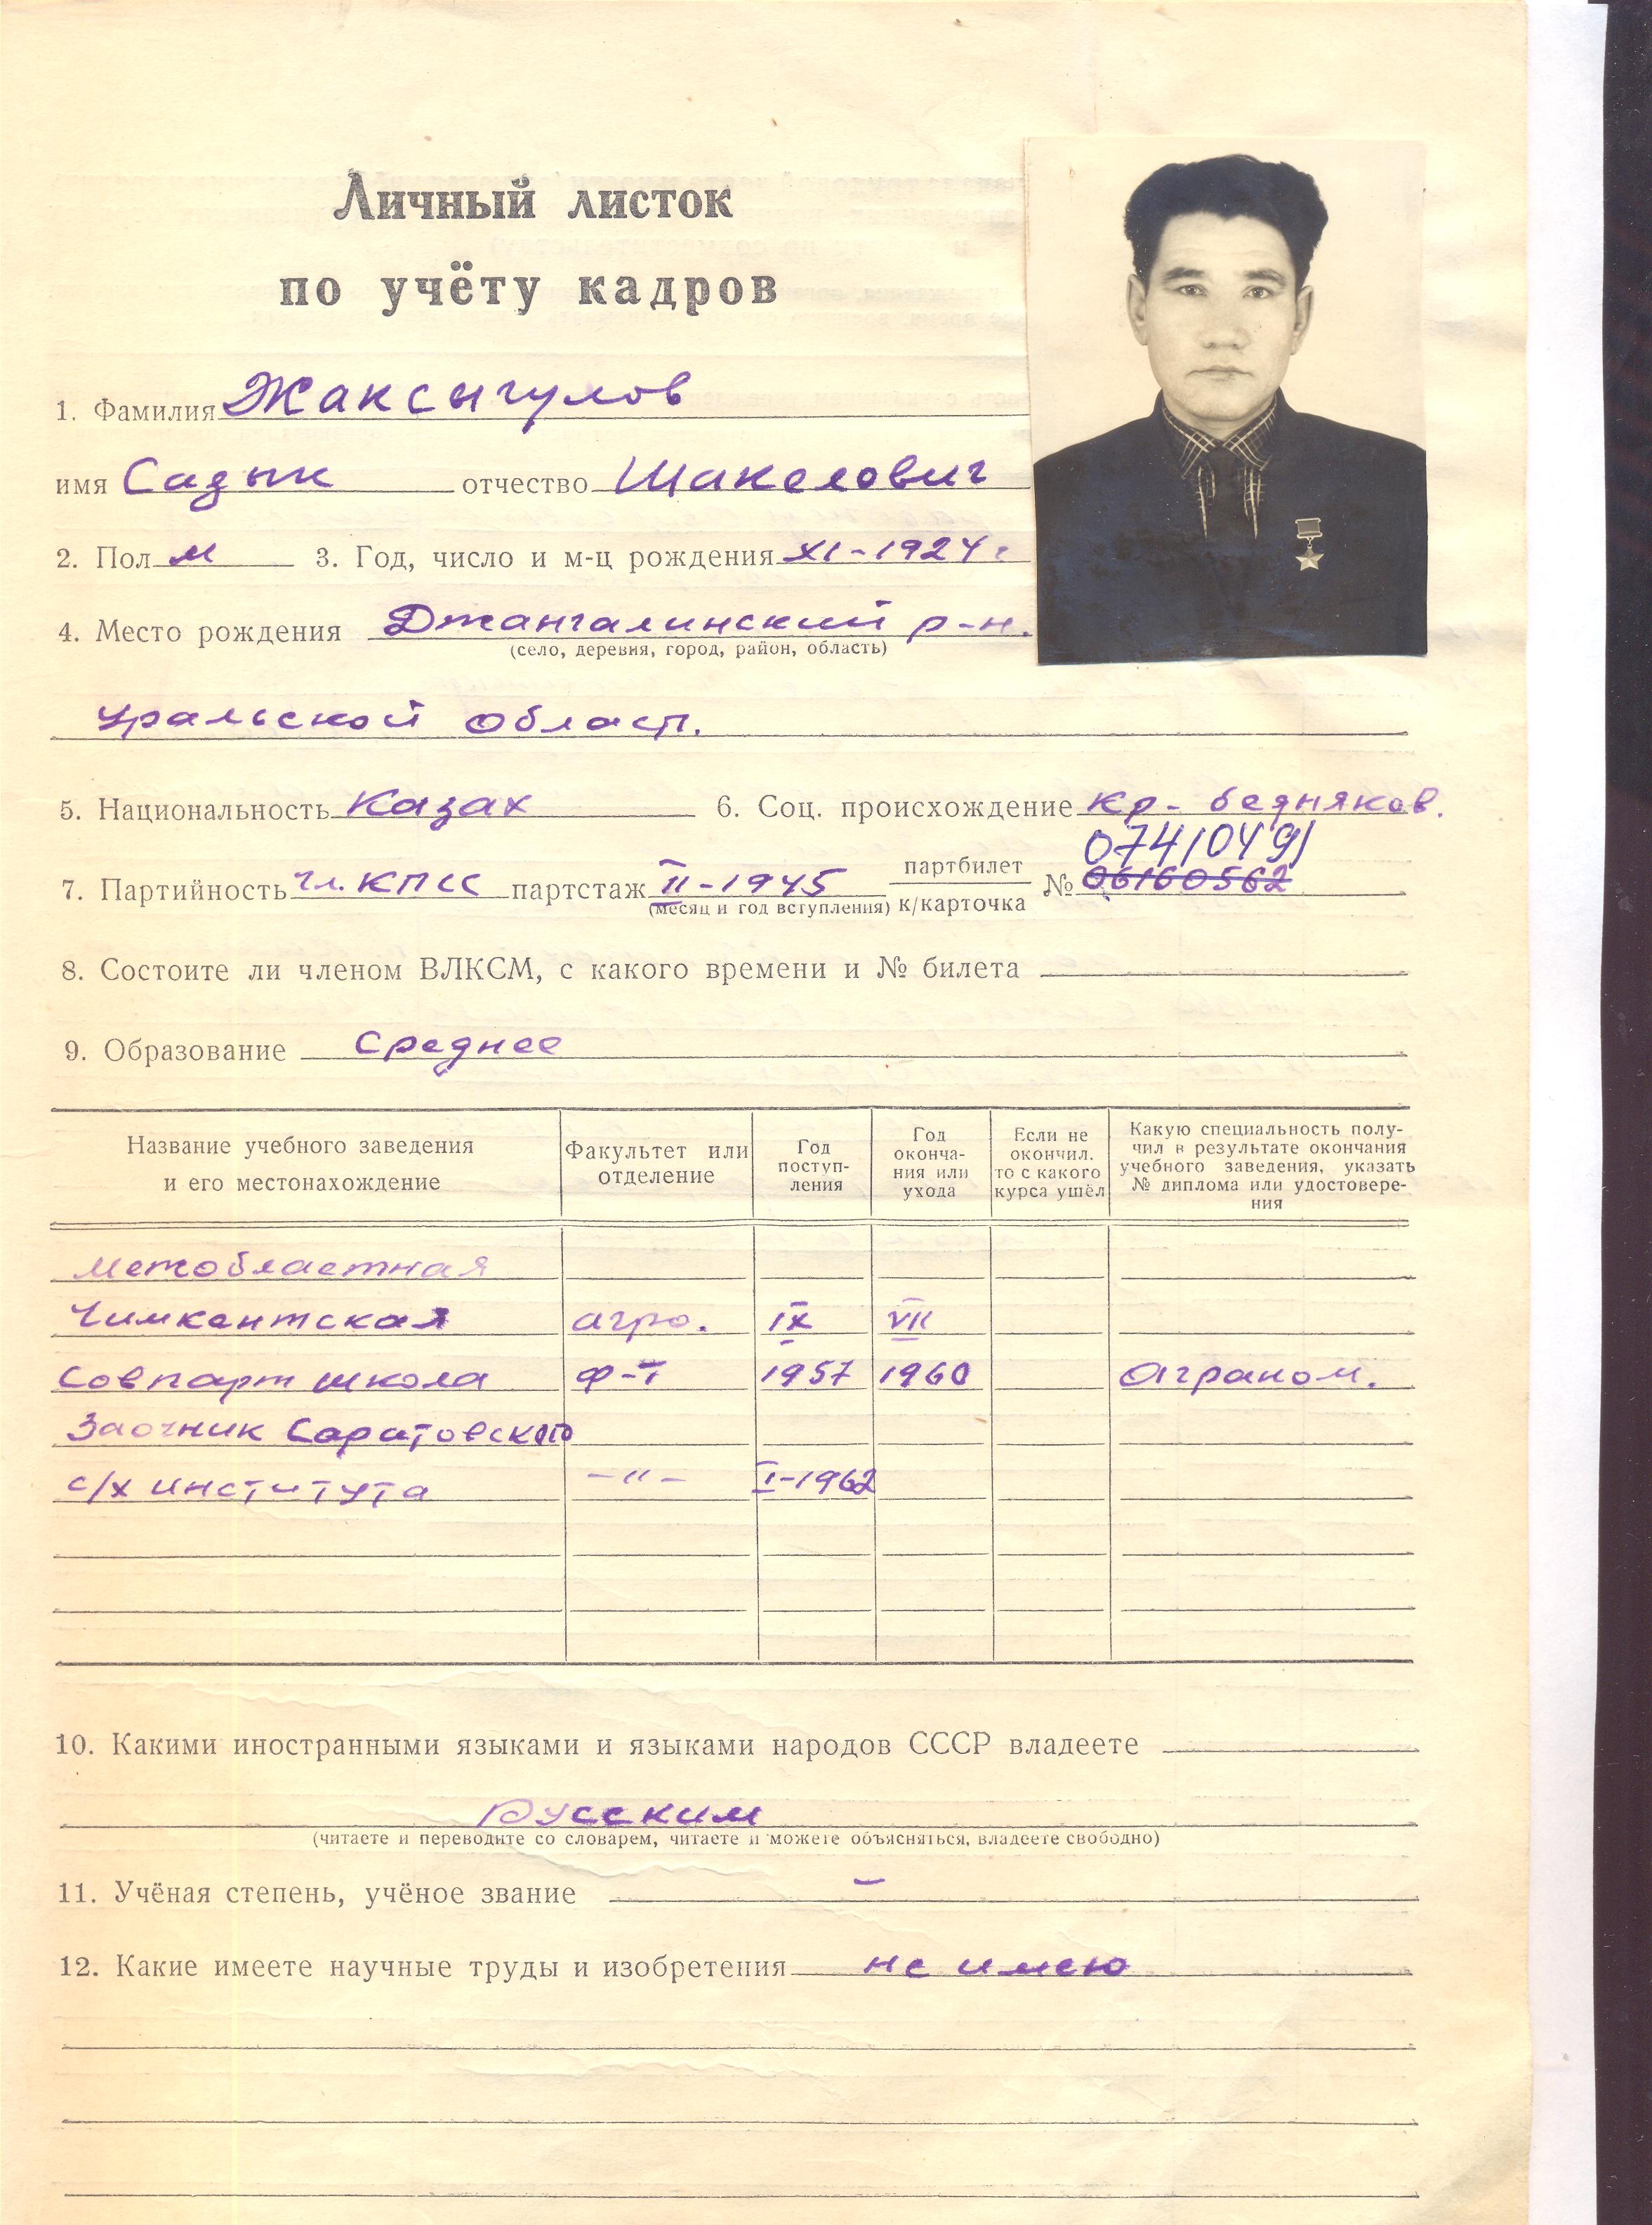 Личный листок
по учёту кадров
1. Фамилия Жаксыгулов
имя Садык отчество Шакелович
2. Пол м 3. Год, число и м-ц рождения XI-1924 г
4. Место рождения Джангалинский р-н.
(село, деревня, город, район, область)
Уральской област.
5. Национальность Казах 6. Соц. происхождение кр- бедняков.
07410491
7. Партийность чл. КПСС партстаж II-1945 партбилет № 06160562
(месяц и год вступления) к/карточка
8. Состоите ли членом ВЛКСМ, с какого времени и № билета
9. Образование Среднее
Название учебного заведения и его местонахождение
Факультет или отделение
Год поступ-ления
Год оконча-ния или ухода
Если не окончил, то с какого курса ушёл
Какую специальность полу-чил в результате окончания учебного заведения, указать № диплома или удостовере-ния
Межобластная
Чимкентская агро. IX VII
Совпарт школа ф-т 1957 1960 Аграном.
Заочник Саратовского
с/х института -"- I-1962
10. Какими иностранными языками и языками народов СССР владеете
Русским
(читаете и переводите со словарем, читаете и можете объясняться, владеете свободно)
11. Учёная степень, учёное звание –
12. Какие имеете научные труды и изобретения не имею